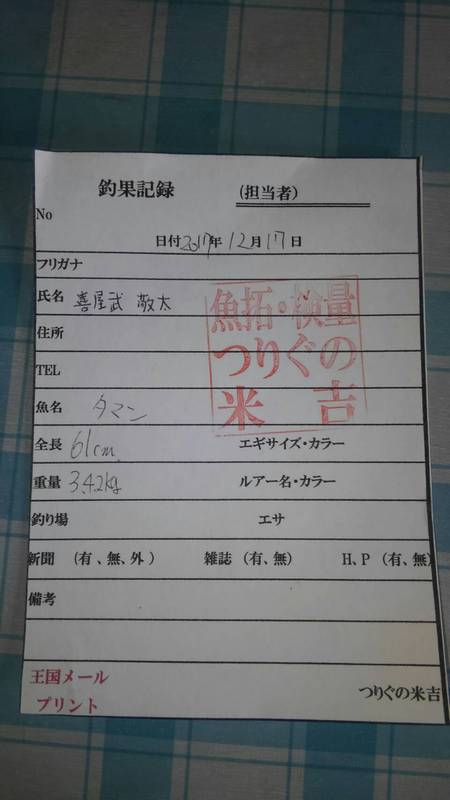 釣果記録 (担当者)
No
日付2017年12月17日
フリガナ
氏名 喜屋武 敬太
住所
TEL
魚拓・検量
つりぐの
米吉
魚名 タマン
全長 61cm エギサイズ・カラー
重量 3.42kg ルアー名・カラー
釣り場 エサ
新聞 (有、無、外) 雑誌 (有、無) H、P (有、無)
備考
王国メール
プリント
つりぐの米吉